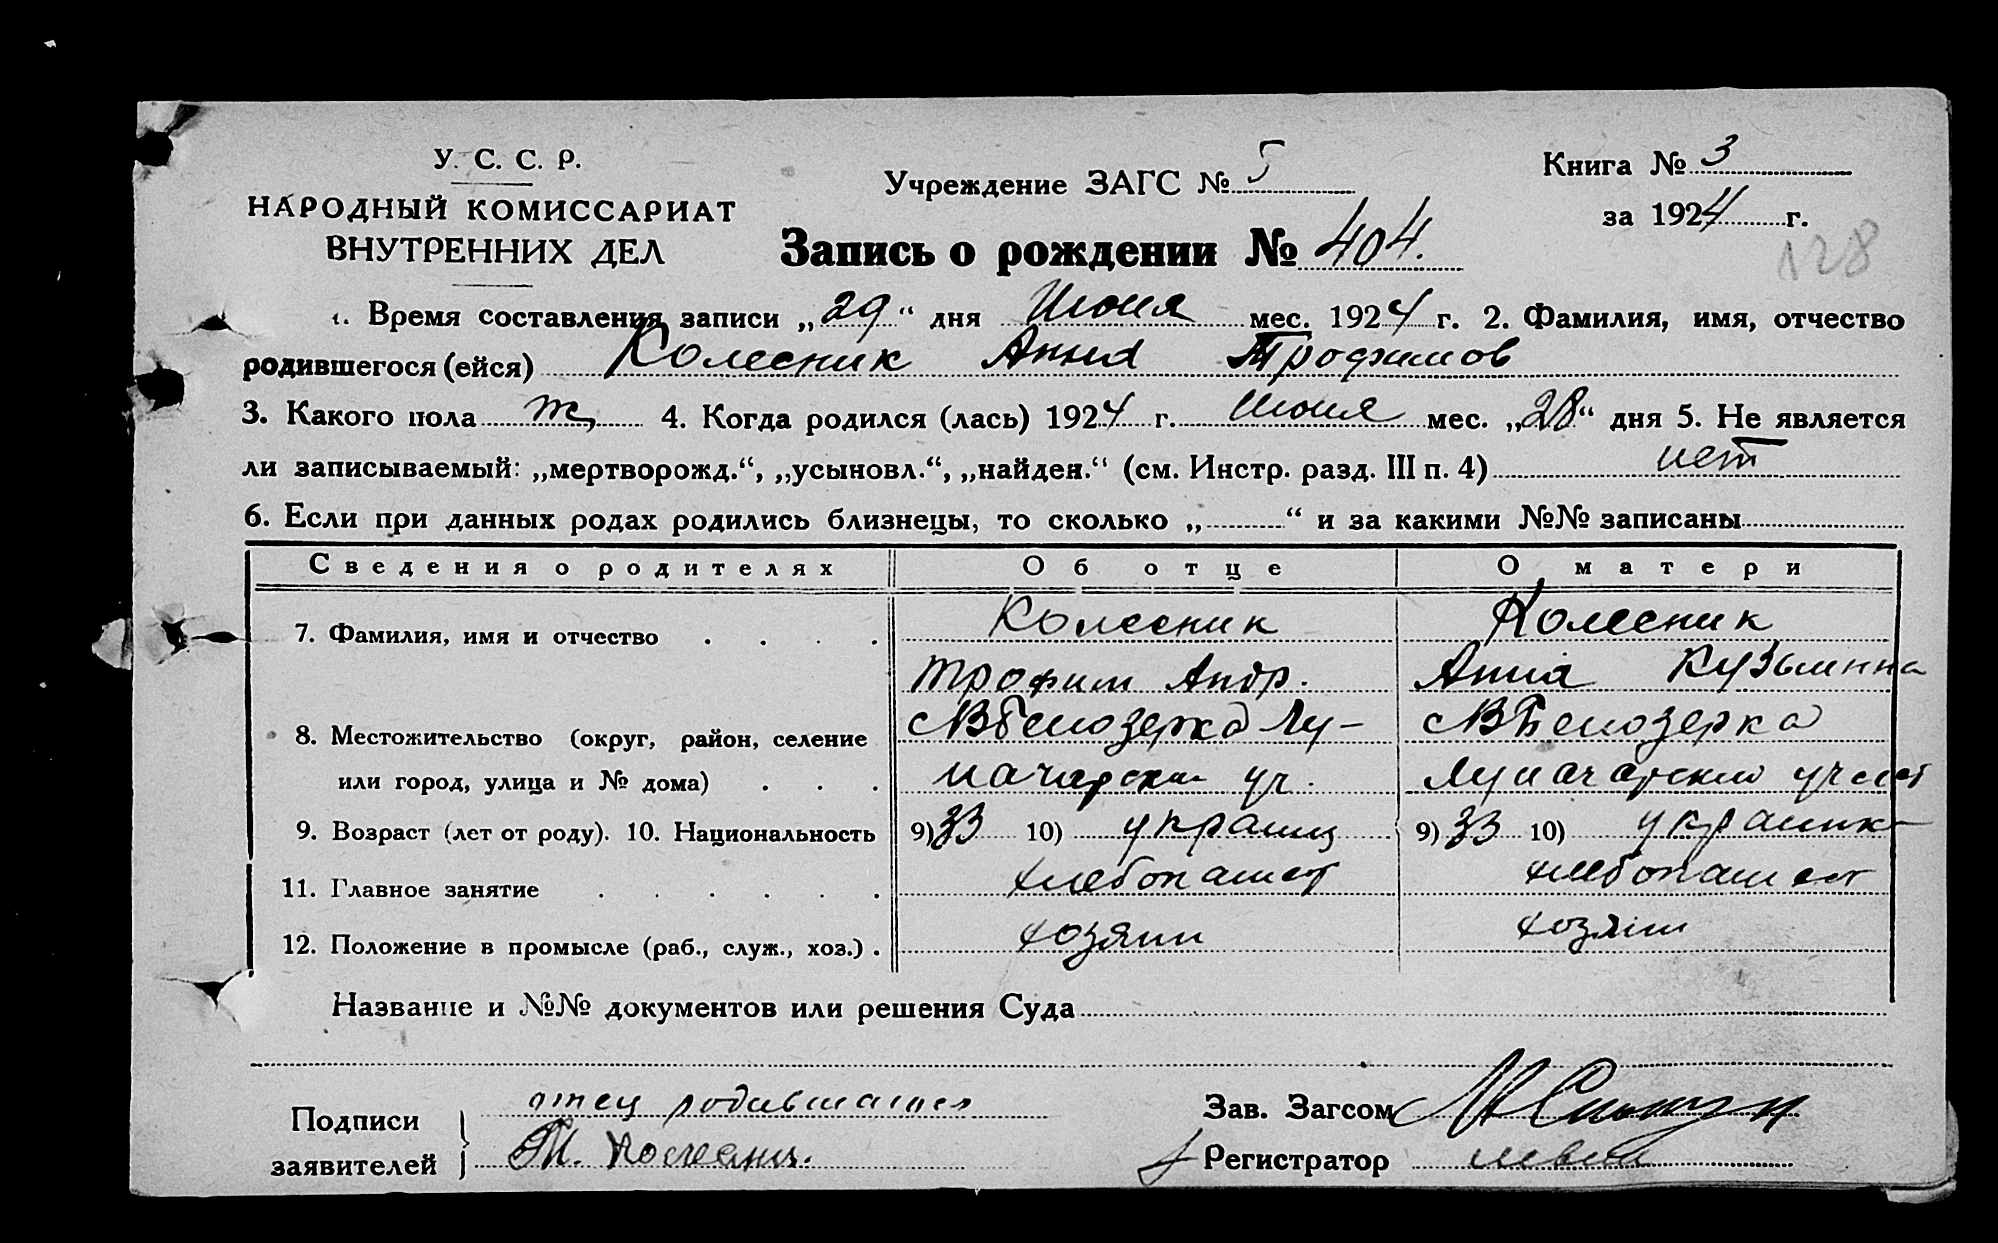 У. С. С. Р.
НАРОДНЫЙ КОМИССАРИАТ
ВНУТРЕННИХ ДЕЛ
Учреждение ЗАГС № 5
Книга № 3
за 1924 г.
Запись о рождении № 404.
128
1. Время составления записи „29“ дня Июня мес. 1924 г. 2. Фамилия, имя, отчество
родившегося (ейся) Колесник Анна Трофимов
3. Какого пола ж, 4. Когда родился (лась) 1924 г. Июня мес. „28“ дня 5. Не является
ли записываемый: „мертворожд.“, „усыновл.“, „найден.“ (см. Инстр. разд. III п. 4) нет
6. Если при данных родах родились близнецы, то сколько „ “ и за какими №№ записаны
Сведения о родителях Об отце О матери
7. Фамилия, имя и отчество Колесник Колесник
Трофим Андр. Анна Кузьминна
8. Местожительство (округ, район, селение МВ Белозерка Лу- МВ Белозерка
или город, улица и № дома) начарский уч. Луначарский участ
9. Возраст (лет от роду). 10. Национальность 9) 33 10) украинц 9) 33 10) украинк
11. Главное занятие хлебопашест хлебопашест
12. Положение в промысле (раб., служ., хоз.) хозяин хозяин
Название и №№ документов или решения Суда
Подписи
заявителей
отец родившегося
Т. Колесник.
Зав. Загсом
Регистратор